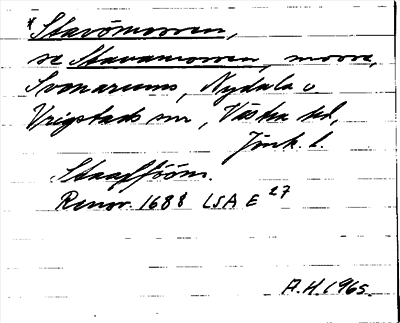 *Stavömossen,
se Stavamossen, mosse,
Svenarums, Nydala o
Vrigstads snr, Västra hd,
Jönk. l.
Renov. 1688 LSA E 27
A.H. 1965.